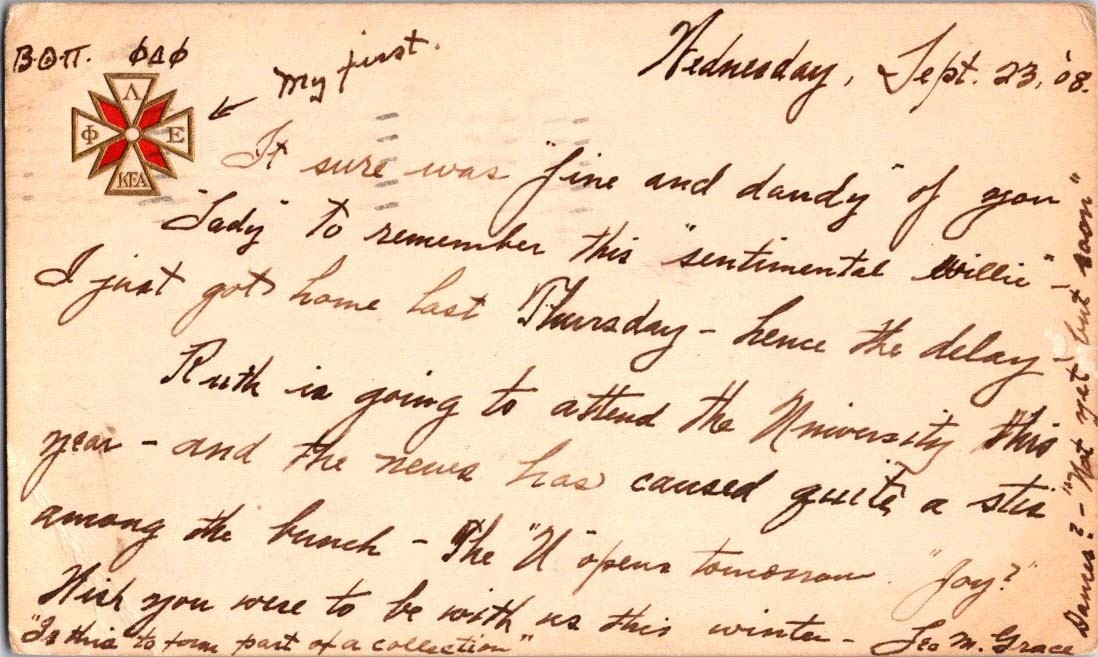 ΒΘΠ. ΦΔΦ
My first.
Wednesday, Sept. 23, '08.
Λ
Φ Ε
ΚΕΑ
It sure was "fine and dandy" of you
"Lady" to remember this "sentimental Willie" -
I just got home last Thursday - hence the delay -
Ruth is going to attend the University this
year - and the news has caused quite a stir
among the bunch - The "U" opens tomorrow. "Joy?"
Wish you were to be with us this winter - Leo M. Grace
"Is this to form part of a collection"
Dames? - "Not yet but soon"